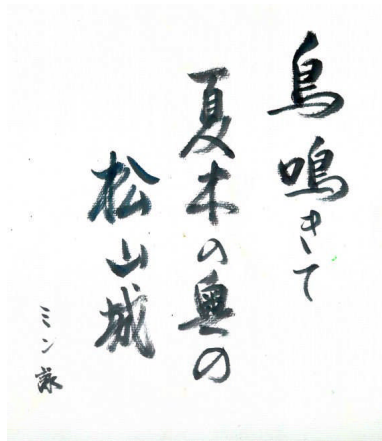 鳥鳴きて
夏木の奥の
松山城
ミン詠